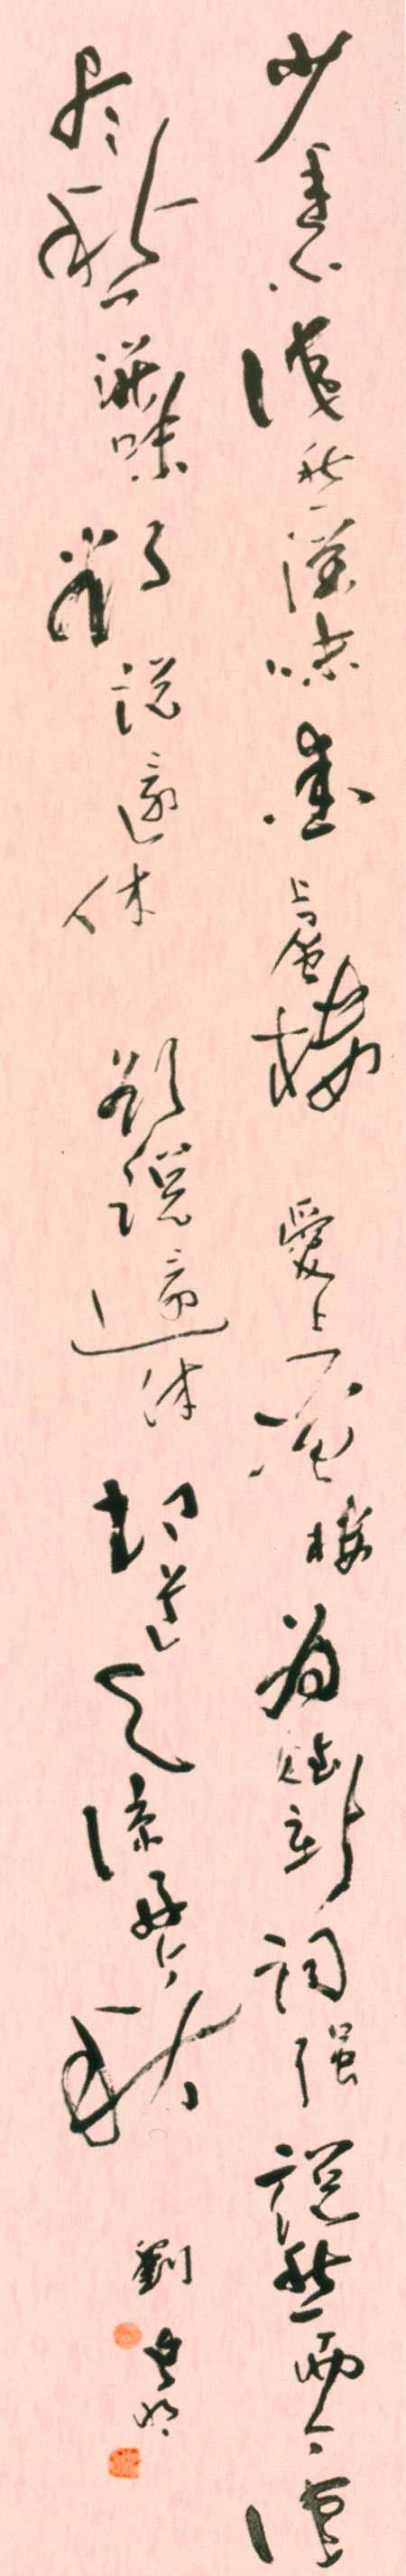 少年不識愁滋味愛上層樓愛上層樓為賦新詞强說愁而今識
盡愁滋味欲說還休欲說還休却道天涼好个秋劉